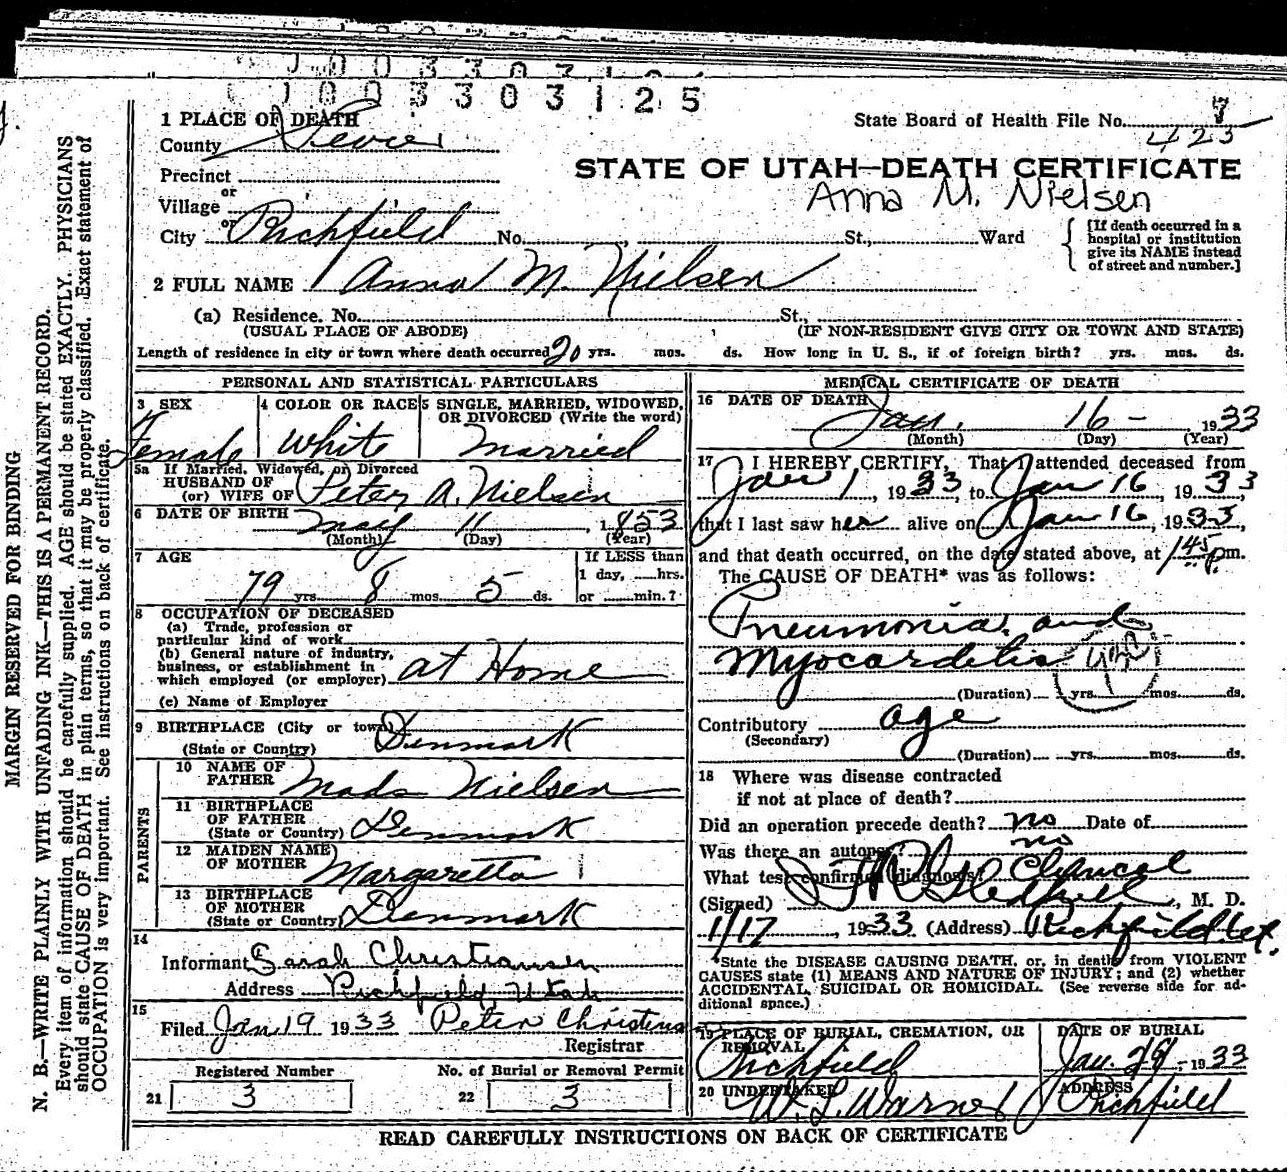 0033031
003303125
1 PLACE OF DEATH
County Sevier
State Board of Health File No. 7
423
STATE OF UTAH—DEATH CERTIFICATE
Anna M. Nielsen
Precinct
or
Village
or
City Richfield No. St., Ward
[If death occurred in a
hospital or institution
give its NAME instead
of street and number.]
2 FULL NAME Anna M. Nielsen
(a) Residence. No. St.,
(USUAL PLACE OF ABODE) (IF NON-RESIDENT GIVE CITY OR TOWN AND STATE)
Length of residence in city or town where death occurred 20 yrs. mos. ds. How long in U. S., if of foreign birth? yrs. mos. ds.
PERSONAL AND STATISTICAL PARTICULARS
3 SEX
Female
4 COLOR OR RACE
White
5 SINGLE, MARRIED, WIDOWED,
OR DIVORCED (Write the word)
married
5a If Married, Widowed, or Divorced
HUSBAND OF
(or) WIFE OF Peter A. Nielsen
6 DATE OF BIRTH May 11, 1853
(Month) (Day) (Year)
7 AGE
79 yrs. 8 mos. 5 ds.
If LESS than
1 day, hrs.
or min.?
8 OCCUPATION OF DECEASED
(a) Trade, profession or
particular kind of work
(b) General nature of industry,
business, or establishment in
which employed (or employer) at Home
(c) Name of Employer
9 BIRTHPLACE (City or town)
(State or Country) Denmark
PARENTS
10 NAME OF
FATHER Mads Nielsen
11 BIRTHPLACE
OF FATHER
(State or Country) Denmark
12 MAIDEN NAME
OF MOTHER Margaretta
13 BIRTHPLACE
OF MOTHER
(State or Country) Denmark
14
Informant Sarah Christiansen
Address Richfield, Utah
15
Filed Jan 19 1933 Peter Christens
Registrar
Registered Number
21 3
No. of Burial or Removal Permit
22 3
MEDICAL CERTIFICATE OF DEATH
16 DATE OF DEATH
Jan. 16 - 1933
(Month) (Day) (Year)
17 I HEREBY CERTIFY, That I attended deceased from
Jan 1, 1933, to Jan 16, 1933
that I last saw her alive on Jan 16, 1933,
and that death occurred, on the date stated above, at 1 45 p.m.
The CAUSE OF DEATH* was as follows:
Pneumonia and
Myocardetis
(Duration) yrs. mos. ds.
Contributory age
(Secondary)
(Duration) yrs. mos. ds.
18 Where was disease contracted
if not at place of death?
Did an operation precede death? no Date of
Was there an autopsy? no
What test confirmed diagnosis? Clinical
(Signed) , M. D.
1/17, 1933 (Address) Richfield Ut.
*State the DISEASE CAUSING DEATH, or, in deaths from VIOLENT
CAUSES state (1) MEANS AND NATURE OF INJURY; and (2) whether
ACCIDENTAL, SUICIDAL OR HOMICIDAL. (See reverse side for ad-
ditional space.)
19 PLACE OF BURIAL, CREMATION, OR
REMOVAL
Richfield
DATE OF BURIAL
Jan. 1933
20 UNDERTAKER
W. L. Warner
ADDRESS
Richfield
READ CAREFULLY INSTRUCTIONS ON BACK OF CERTIFICATE
MARGIN RESERVED FOR BINDING
N. B.—WRITE PLAINLY WITH UNFADING INK—THIS IS A PERMANENT RECORD.
Every item of information should be carefully supplied. AGE should be stated EXACTLY. PHYSICIANS
should state CAUSE OF DEATH in plain terms, so that it may be properly classified. Exact statement of
OCCUPATION is very important. See instructions on back of certificate.